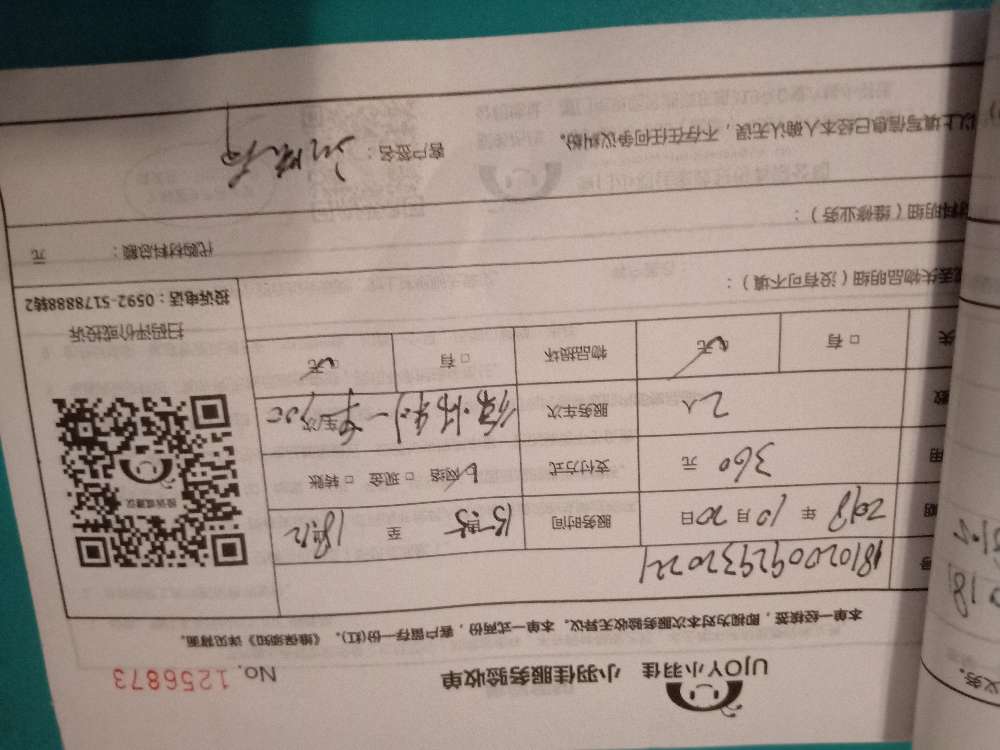 UJOY小羽佳 小羽佳服务验收单 No. 1256873
本单一经核签，即视为对本次服务验收无异议。本单一式两份，客户留存一份(红)。《维保须知》详见背面。
号
期 2018 年 10 月 20 日 服务时间 至
用 360 元 支付方式 网络 □ 现金 □ 转账
数 2人 服务车次 车/次
失 □ 有 无 物品损坏 □ 有 无
投诉或建议
扫码评价或投诉
投诉电话：0592-5178888转2
丢失物品明细（没有可不填）：
材料明细（维修业务）： 代购材料总额： 元
以上填写信息已经本人确认无误，不存在任何争议纠纷。 客户签名：
义务.